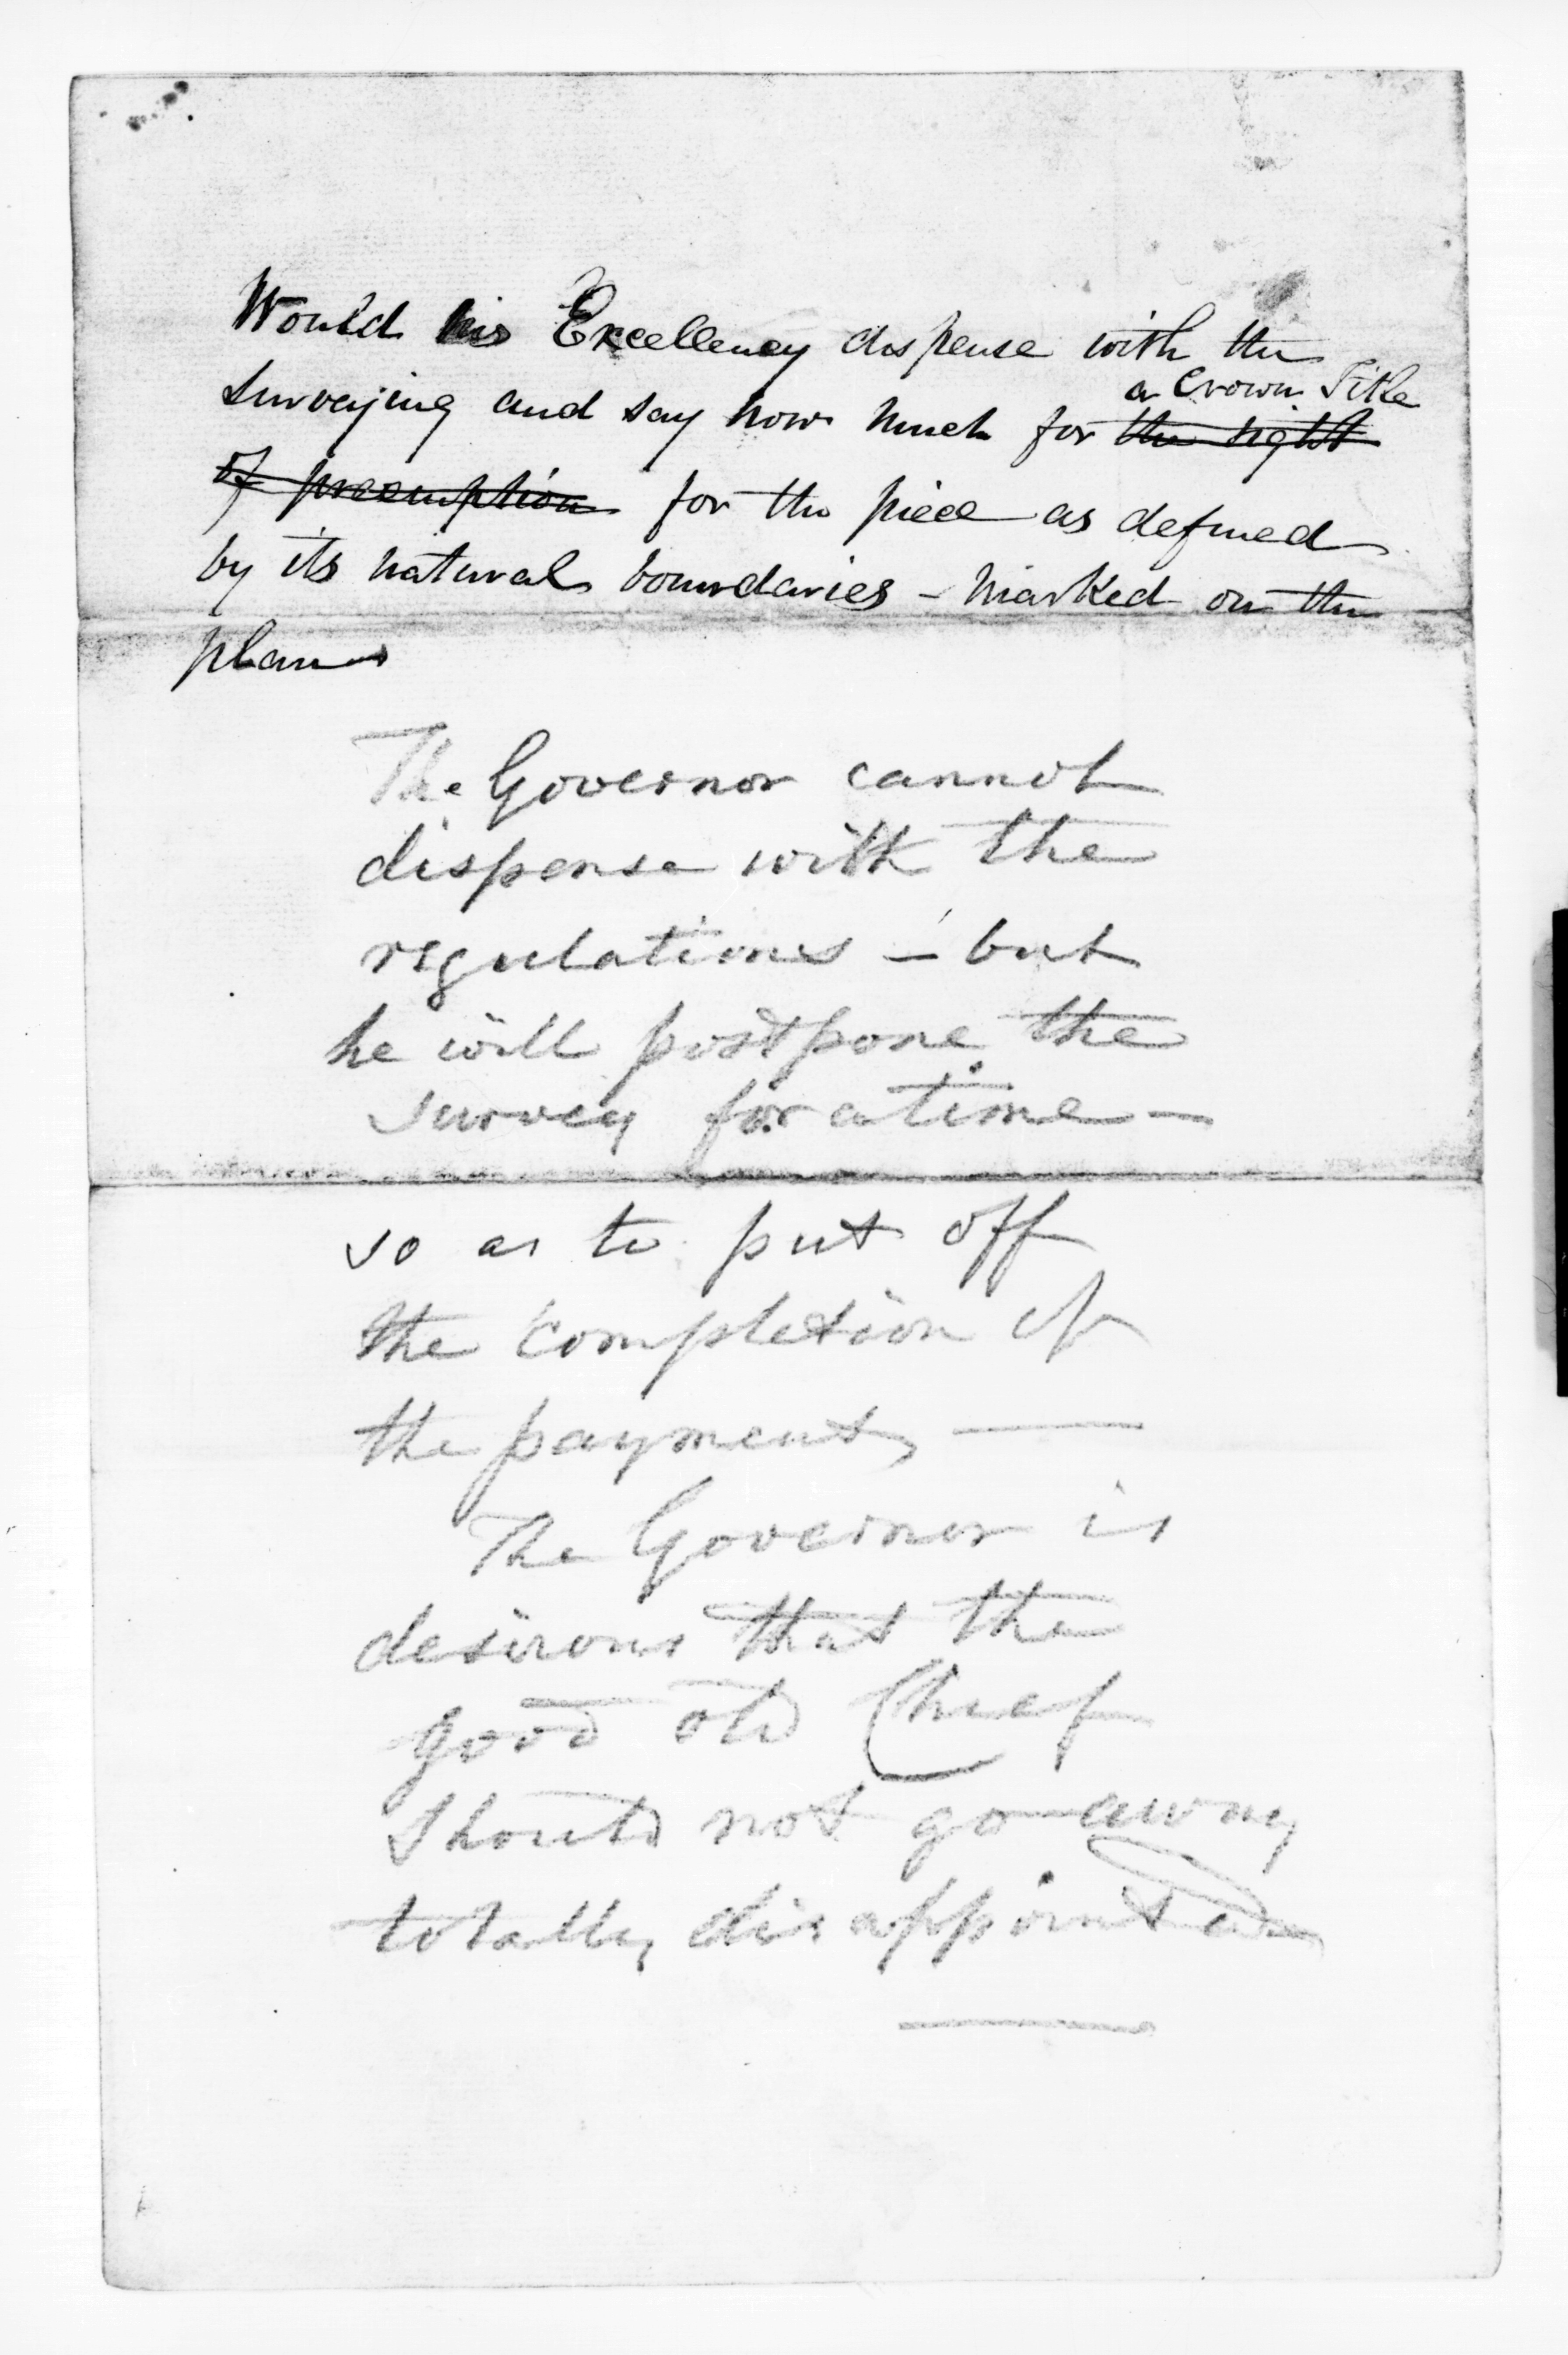 Would his Excellency dispense with the
surveying and say how much for the right
a Crown Title
of preemption for the piece as defined
by its natural boundaries - marked on the
plan
The Governor cannot
dispense with the
regulations - but
he will postpone the
survey for a time -
so as to put off
the completion of
the payment, -
The Governor is
desirous that the
good old Chief
should not go away
totally disappointed